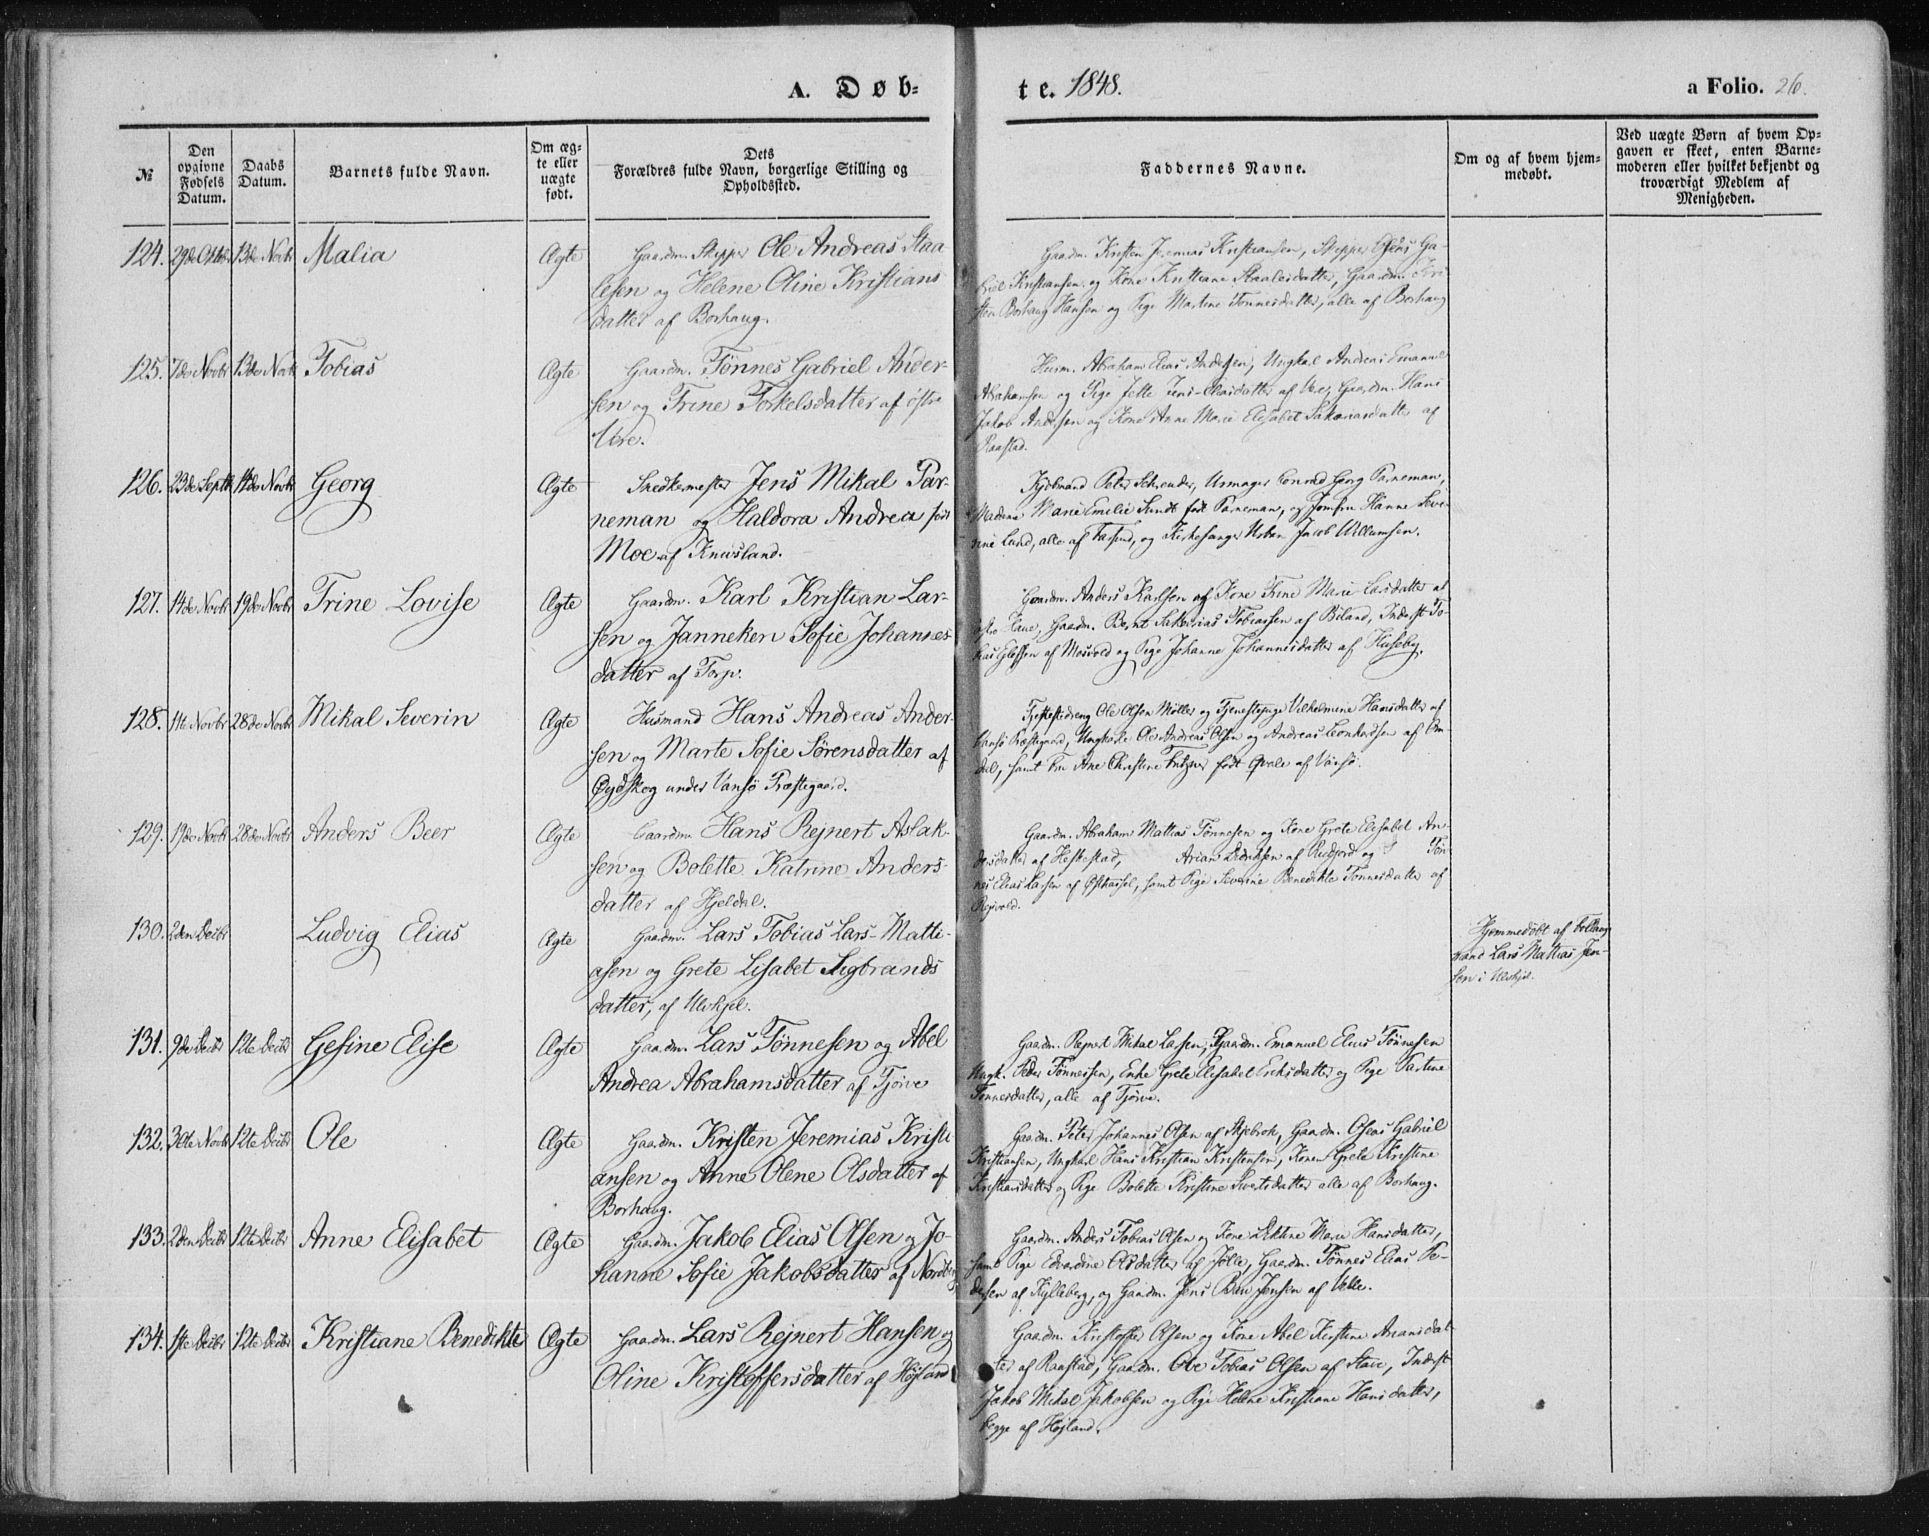 A. Døb-
te. 1848.
a Folio. 26.
№
Den opgivne Fødsels Datum.
Daabs Datum.
Barnets fulde Navn.
Om ægte eller uægte født.
Dets
Forældres fulde Navn, borgerlige Stilling og
Opholdssted.
Faddernes Navne.
Om og af hvem hjem-
medøbt.
Ved uægte Børn af hvem Op-
gaven er skeet, enten Barne-
moderen eller hvilket bekjendt og
troværdigt Medlem af
Menigheden.
124. 29de Octbr 13de Novbr Malia Ægte Gaardm. Skipper Ole Andreas Staa
lesen og Helene Oline Kristians
datter af Borhaug.
Gaardm. Kristen Jeremias Kristiansen, Skipper Oseas Ga-
briel Kristiansen og Kone Kristiane Staalesdatter, Gaardm. Kri
sten Borhaug Hansen og Pige Martine Tønnesdatter, alle af Borhaug
125. 7de Novbr 13de Novbr Tobias Ægte Gaardm. Tønnes Gabriel Ander-
sen og Trine Torkelsdatter af østre
Vere.
Husm. Abraham Elias Andersen, Ungkal Andreas Emanuel
Abrahamsen og Pige Jette Jens-Eliasdatter af Vere, Gaardm. Hans
Jakob Andersen og Kone Anne Marie Elisabet Sakariasdatter af
Raustad.
126. 23de Septbr 14de Novbr Georg Ægte Snedkermester Jens Mikal Par-
neman og Haldora Andrea født
Moe af Knivsland.
Kjøbmand Peter Schreuder, Urmager Conrad Georg Parneman,
Madame Marie Emilie Sundt født Parneman, og Jomfru Hanne Seve-
rine Lund, alle af Farsund, og Kirkesanger Urban Jacob Willumsen.
127. 14de Novbr 19de Novbr Trine Lovise Ægte Gaardm. Karl Kristian Lar-
sen og Janneken Sofie Johannes
datter af Torp.
Gaardm. Anders Karlsen og Kone Trine Marie Larsdatter af
østre Have, Gaardm. Bernt Sakarias Tobiassen af Biland, Inderst To-
bias Elefsen af Mosvold og Pige Johanne Johannesdatter af Huseby.
128. 11te Novbr 28de Novbr Mikal Severin Ægte Husmand Hans Andreas Ander-
sen og Marte Sofie Sørensdatter af
Øydskog under Vansø Præstegaard.
Tjenestedreng Ole Olsen Møller og Tjenestepige Vilhelmine Hansdatter af
Vansø Præstegaard, Ungkarle Ole Andreas Olsen og Andreas Leonhardsen af Om
dal, samt Fru Ane Christine født Qvale af Vansø.
129. 19de Novbr 28de Novbr Anders Beer Ægte Gaardm. Hans Rejnert Aslak-
sen og Bolette Katrine Anders-
datter af Hjeldal.
Gaardm. Abraham Mattias Tønnesen og Kone Grete Elisabet An-
dersdatter af Hestestad, Arian Didriksen af Rudjord og Tøn-
nes Elias Larsen af Østhassel, samt Pige Severine Benedikte Tønnesdatter af
Rejvold.
130. 2den Decbr Ludvig Elias Ægte Gaardm. Lars Tobias Lars-Matti-
asen og Grete Lisabet Sigbrands
datter, af Ulvhjel.
Hjemmedøbt af Følgaug
mand Lars Mattias Jen-
sen i Ulvhjel.
131. 9de Decbr 12te Decbr Gesine Elise Ægte Gaardm. Lars Tønnesen og Abel
Andrea Abrahamsdatter af Tjørve
Gaardm. Rejnert Mikal Larsen, Gaardm. Emanuel Elias Tønnesen
Ungk. Peder Tønnessen, Enke Grete Elisabet Eriksdatter og Pige Martine
Tønnesdatter, alle af Tjørve.
132. 30te Novbr 12te Decbr Ole Ægte Gaardm. Kristen Jeremias Kristi
ansen og Anne Olene Olsdatter af
Borhaug.
Gaardm. Peter Johannes Olsen af Skjebrok, Gaardm. Oseas Gabriel
Kristiansen, Ungkarl Hans Kristian Kristensen, Konen Grete Kristine
Kristiansdatter og Pige Bolette Kristine Sivertsdatter alle af Borhaug.
133. 2den Decbr 12te Decbr Anne Elisabet Ægte Gaardm. Jakob Elias Olsen og Jo-
hanne Sofie Jakobsdatter af Nordberg
Gaardm. Anders Tobias Olsen og Kone Line Marie Hansdatter,
samt Pige Edvardine Olsdatter af Jølle, Gaardm. Tønnes Elias Pe-
dersen af Kylleberg, og Gaardm. Jens Beer Jensen af Velle.
134. 1ste Decbr 12te Decbr Kristiane Benedikte Ægte Gaardm. Lars Rejnert Hansen og
Oline Kristoffersdatter af Højland
Gaardm. Kristoffer Olsen og Kone Abel Kristine Ariansdat-
ter af Raustad, Gaardm. Ove Tobias Olsen af Stave, Inderst
Jakob Mikal Jakobsen og Pige Helene Kristiane Hansdatter,
begge af Højland.